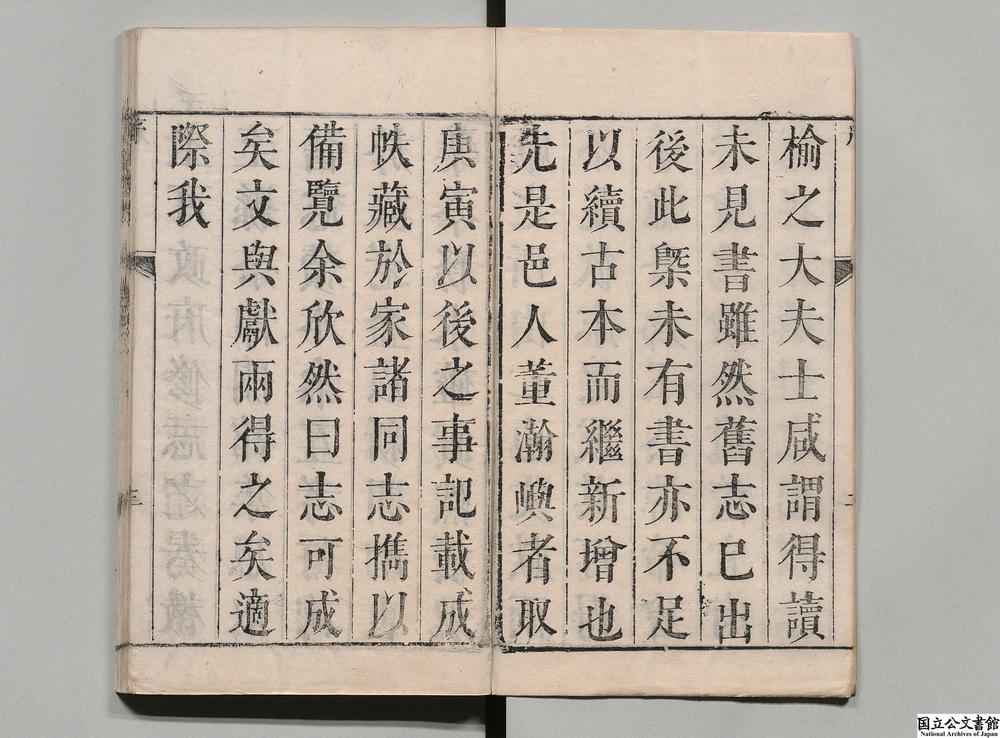 榆之大夫士咸謂得讀
未見書雖然舊志已出
後此槩未有書亦不足
以續古本而繼新增也
先是邑人董瀚嶼者取
庚寅以後之事記載成
帙藏於家諸同志攜以
備覽余欣然曰志可成
矣文與獻兩得之矣適
際我
国立公文書館
National Archives of Japan